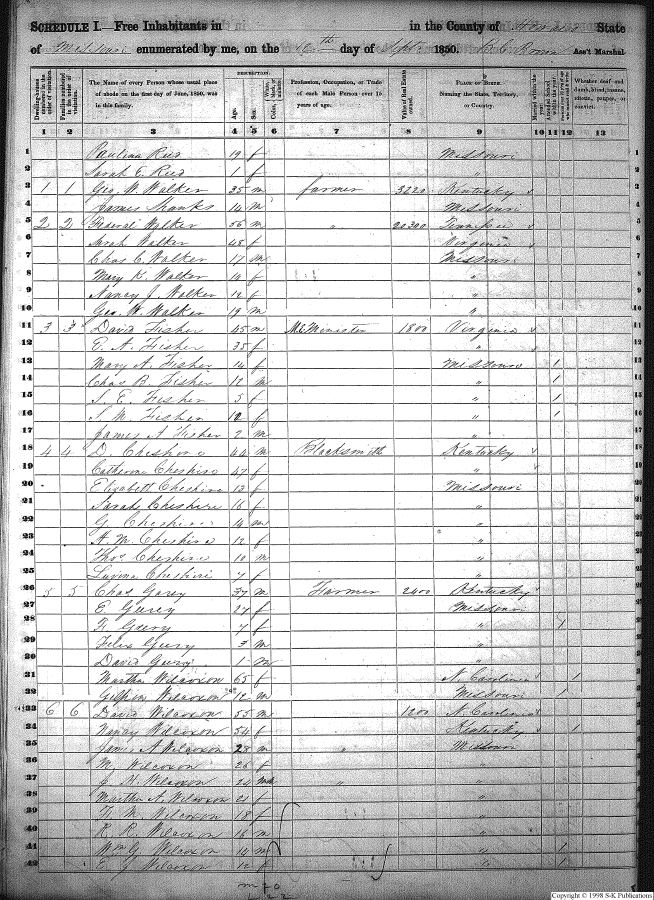 SCHEDULE I.—Free Inhabitants in in the County of State
of Missouri enumerated by me, on the day of Sept 1850. Ass't Marshal.
Dwelling-houses numbered in the order of visitation.
Families numbered in the order of visitation.
The Name of every Person whose usual place of abode on the first day of June, 1850, was in this family.
DESCRIPTION.
Age.
Sex.
Color, White, black, or mulatto.
Profession, Occupation, or Trade of each Male Person over 15 years of age.
Value of Real Estate owned.
PLACE OF BIRTH. Naming the State, Territory, or Country.
Married within the year.
Attended School within the year.
Whether deaf and dumb, blind, insane, idiotic, pauper, or convict.
1 2 3 4 5 6 7 8 9 10 11 12 13
1 Paulina Reed 19 f Missouri 1
2 Sarah E. Reed 1 f " 2
3 1 1 Geo. W. Walker 35 m farmer 3220 Kentucky 3
4 James Shanks 14 m Missouri 4
5 2 2 Walker 56 m " 20300 Tennessee 5
6 Sarah Walker 48 f Virginia 6
7 Chas C. Walker 17 m Missouri 7
8 Mary K. Walker 14 f " 8
9 Nancy J. Walker 12 f " 9
10 Geo. W. Walker 19 m " 10
11 3 3 David Fisher 45 m M.E. Minister 1800 Virginia 11
12 E. A. Fisher 35 f " 12
13 Mary A. Fisher 14 f Missouri 1 13
14 Chas B. Fisher 12 m " 1 14
15 S. E. Fisher 5 f " 1 15
16 S. M. Fisher 12 f " 1 16
17 James A. Fisher 2 m " 17
18 4 4 D. Cheshire 44 m Blacksmith Kentucky 18
19 Catherine Cheshire 47 f " 19
20 Elizabeth Cheshire 13 f Missouri 20
21 Sarah Cheshire 16 f " 21
22 G. Cheshire 14 m " 22
23 A. M. Cheshire 12 f " 23
24 Thos. Cheshire 10 m " 24
25 Luvina Cheshire 7 f " 25
26 5 5 Chas Garey 37 m Farmer 2400 Kentucky 26
27 E. Garey 27 f Missouri 27
28 Garey 7 f " 1 28
29 Felix Garey 3 m " 29
30 David Garey 1 m " 30
31 Martha Wilcoxon 65 f N. Carolina 1 31
32 Wilcoxon 12 m Missouri 1 32
33 6 6 David Wilcoxon 55 m 1200 N. Carolina 33
34 Nancy Wilcoxon 54 f Kentucky 1 34
35 James A Wilcoxon 28 m " Missouri 35
36 M. Wilcoxon 26 f " 36
37 J. N. Wilcoxon 24 m " " 37
38 Martha A. Wilcoxon 21 f " 38
39 M. Wilcoxon 18 f " 39
40 R. R. Wilcoxon 16 m " 40
41 Wm G. Wilcoxon 14 m " 1 41
42 E. G. Wilcoxon 12 f " 1 42
Copyright © 1998 S-K Publications